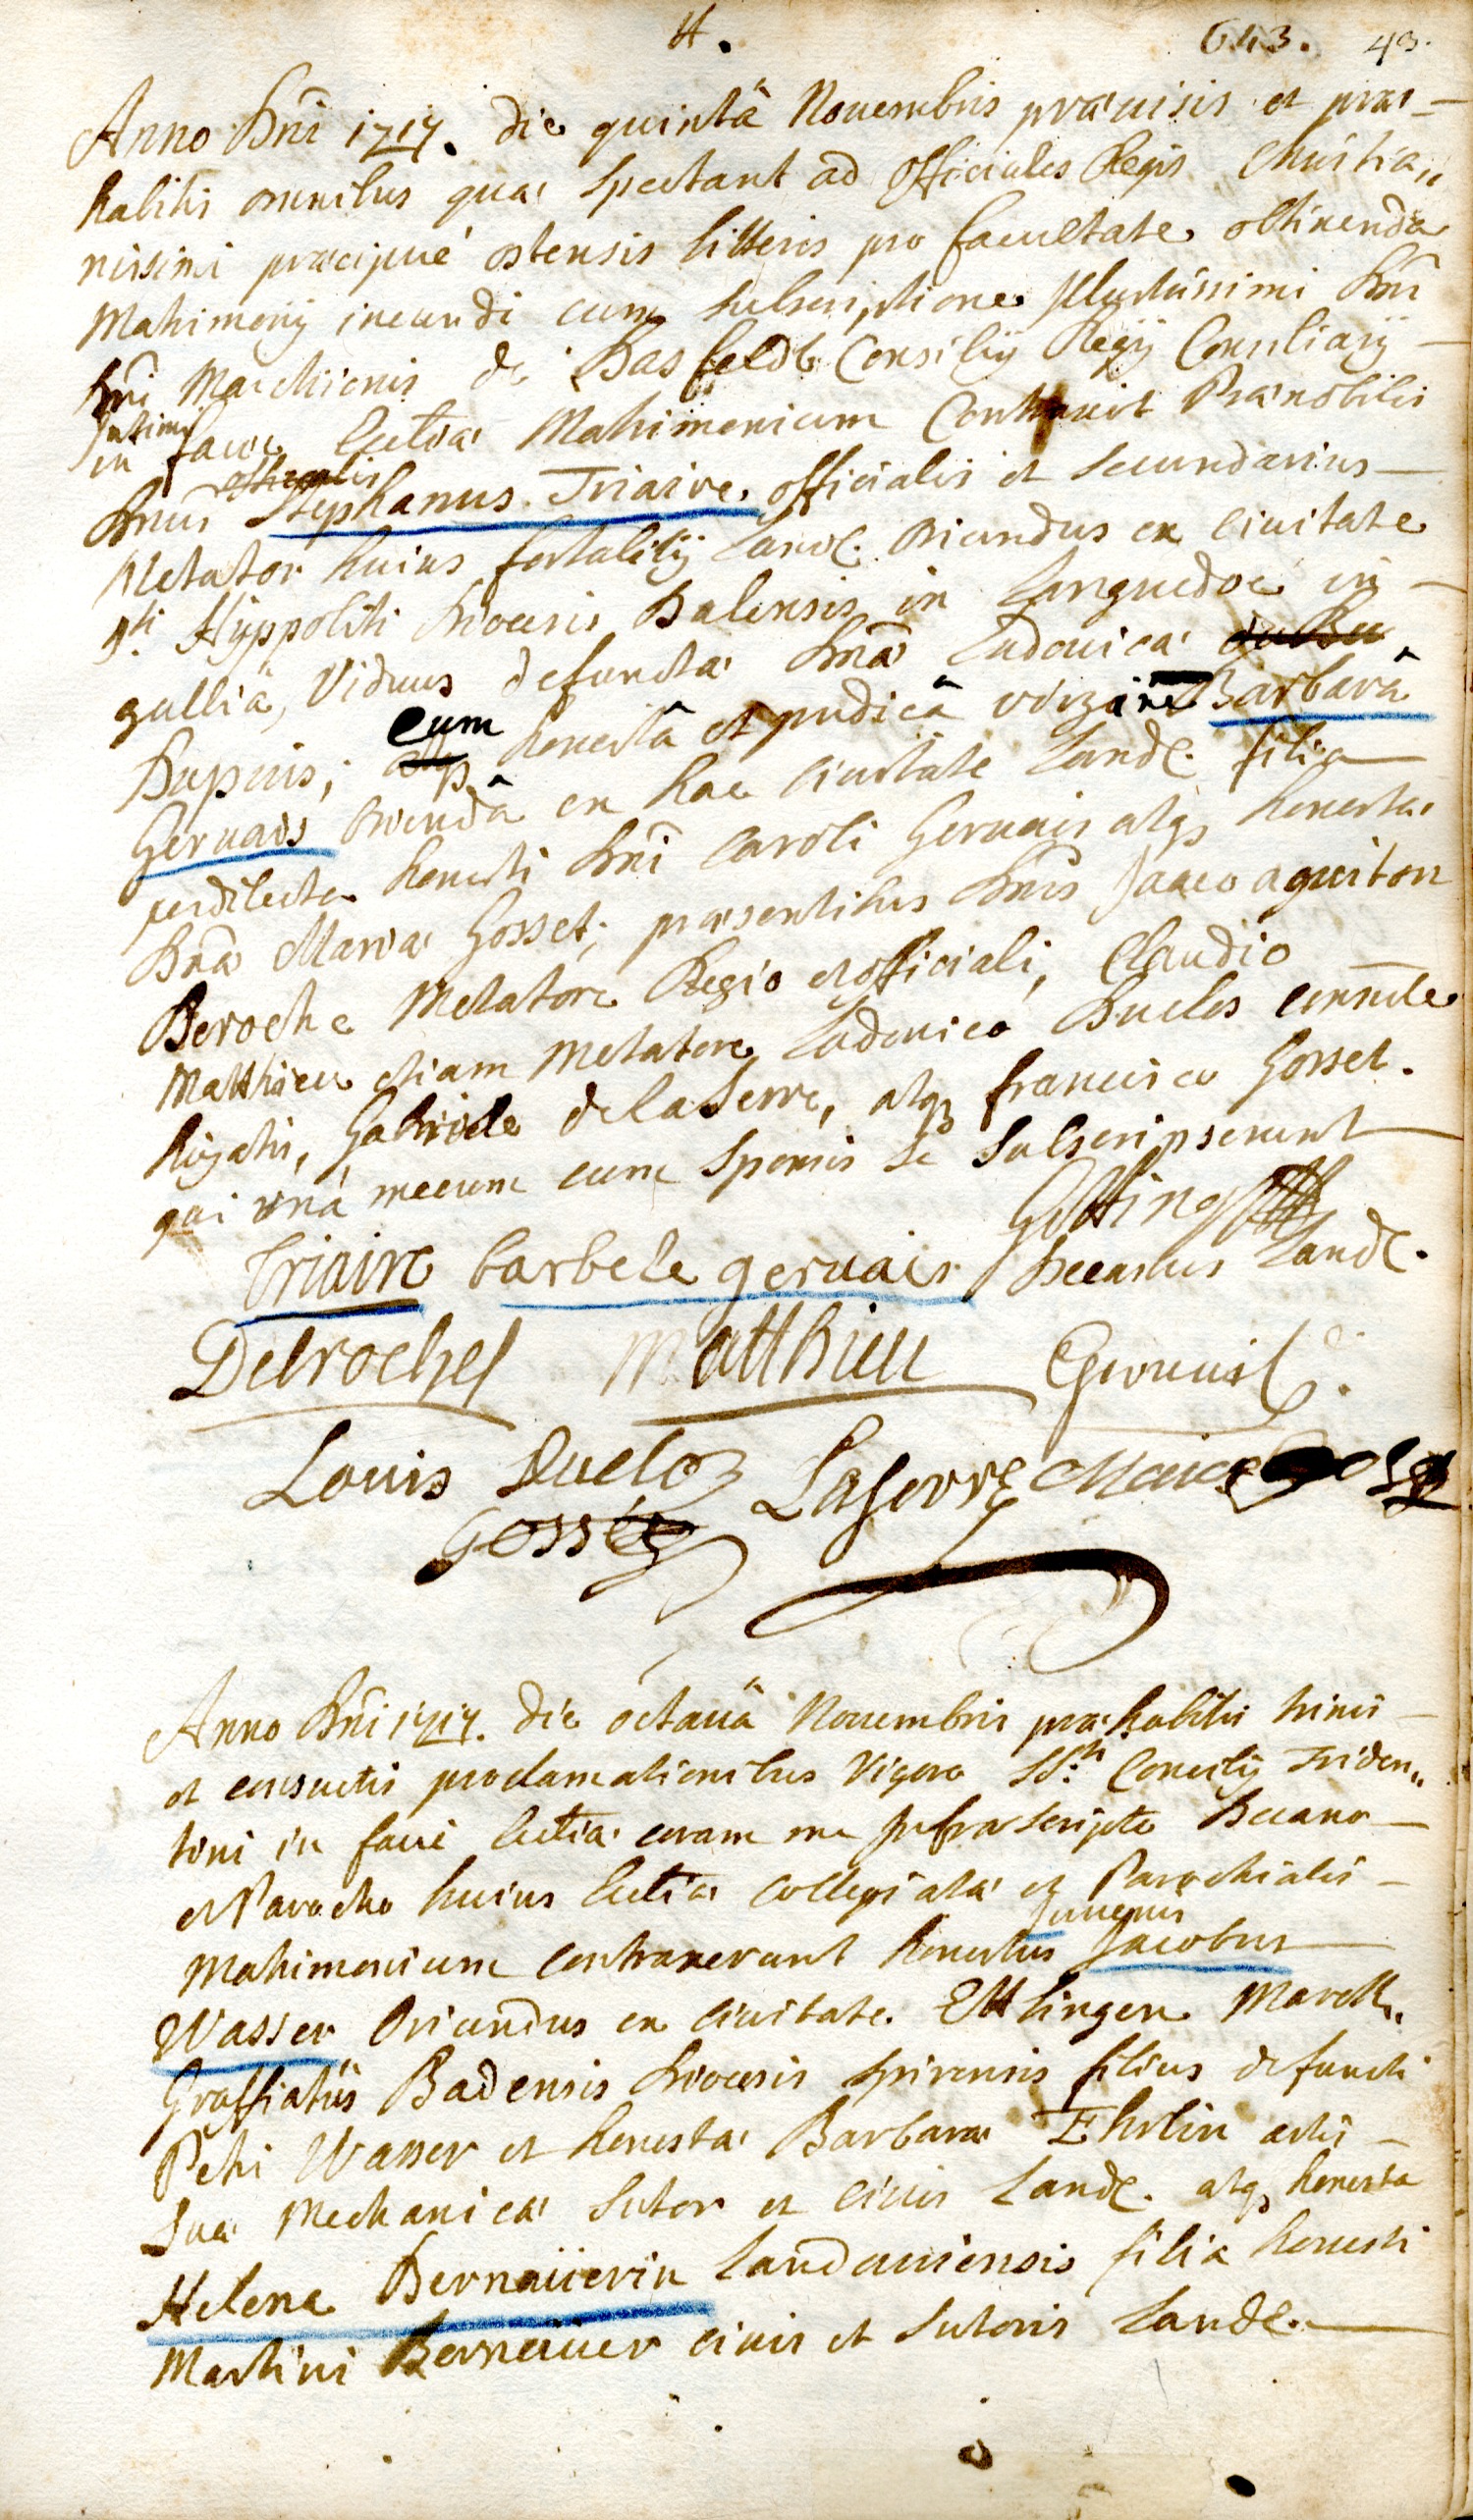 4.
643. 43.
Anno Dnī 1717. die quintâ Novembris prævisis et præ—
habitis omnibus quæ spectant ad officiales Regis Christia,,
nissimi præcipuè ostensis litteris pro facultate obtinenda
Matrimonÿ ineundi cum subscriptione Illustrissimi Dnī
Dnī Marchionis de Basfeldt Consilÿ Regÿ Consiliarÿ—
Intimi
in facie Ecclīæ Matrimonium Contraxit Prænobilis
Dnus Stephanus Triaire, officialis et secundarius—
Metator huius fortalitÿ Land. Oriundus ex civitate
Sti. Hyppoliti Diocesis Balensis in Languedoc in—
galliâ, Viduus defunctæ Dnæ Ludovicæ
Dupuis; cum honestâ et pudicâ virgine Barbarâ
Gervais Oriundâ ex hac civitate Land. filia—
perdilecta honesti Dnī Caroli Gervais atq3 honestæ
Dnæ Mariæ Gosset; præsentibus Dnīs Jacco aguiton
Beroche Metatore Regio et officiali, Claudio—
Matthieu etiam Metatore Ludovico Duclos consule
Rogatis, Gabriele de la Serre, atq3 francisco Gosset.
qui unà mecum cum sponsis se subscripserunt—
Triaire barbele gervais Decanus Land.
Delroches Matthieu Gervais
Louis Duclos Laserre Marie
Gossez
Anno Dnī 1717. die octavâ Novembris præhabitis trinis—
et consuetis proclamationibus Vigore SSti. Concilÿ Triden,,
tini in facie Ecclīæ coram me Infrascripto Decano—
et Parocho huius Ecclīæ Collegiatæ et Parochialis—
Juvenis
Matrimonium contraxerunt honestus Jacobus—
Wasser Oriundus ex civitate Ettlingen March,,
Graffiatûs Badensis Diocesis Spirensis filius defuncti
Petri Wasser et honestæ Barbaræ Ehrlin artis—
suæ Mechanicæ sutor et civis Land. atq3 honesta
Helena Bernaüerin Landaviensis filia honesti
Martini Bernaüer civis et sutoris Land.—